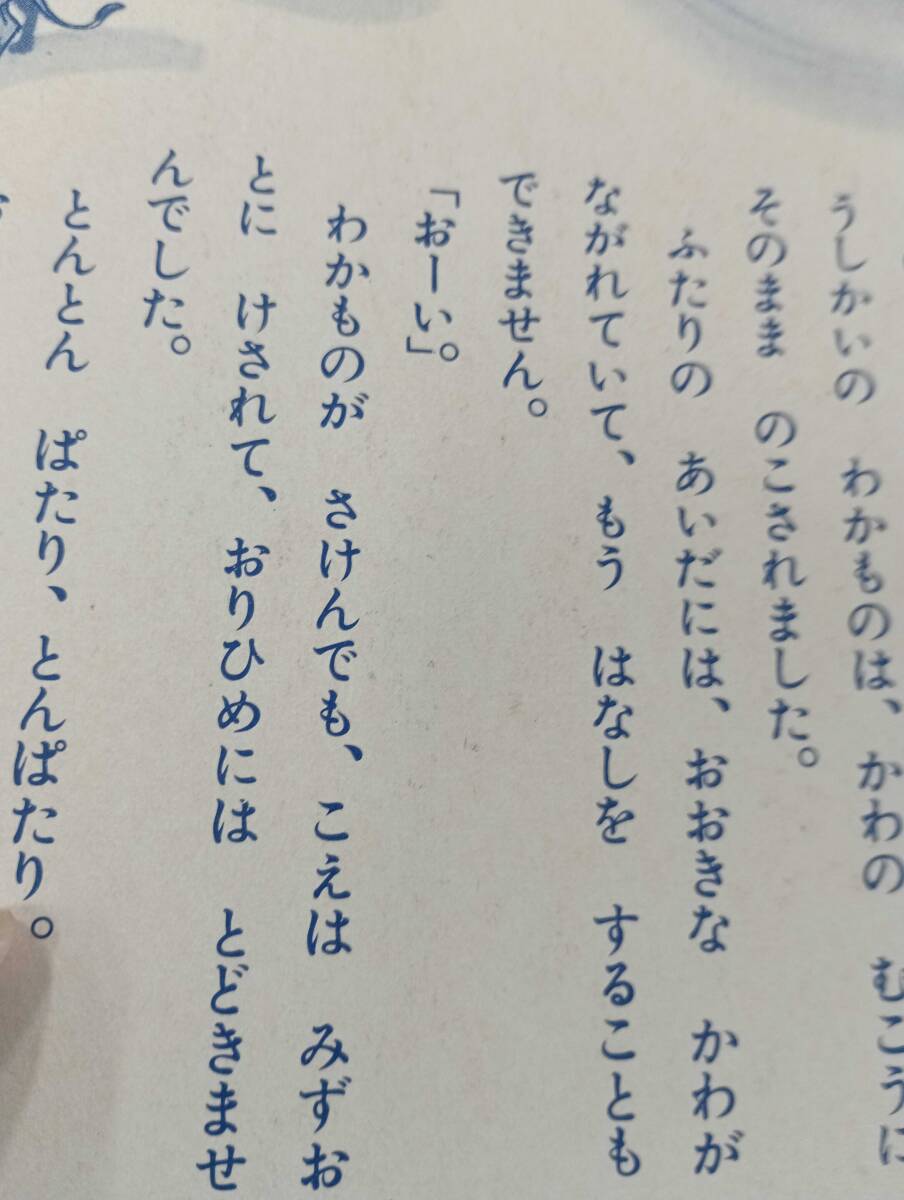 うしかいの わかものは、かわの むこうに
そのまま のこされました。
ふたりの あいだには、おおきな かわが
ながれていて、もう はなしを することも
できません。
「おーい」。
わかものが さけんでも、こえは みずお
とに けされて、おりひめには とどきませ
んでした。
とんとん ぱたり、とんぱたり。